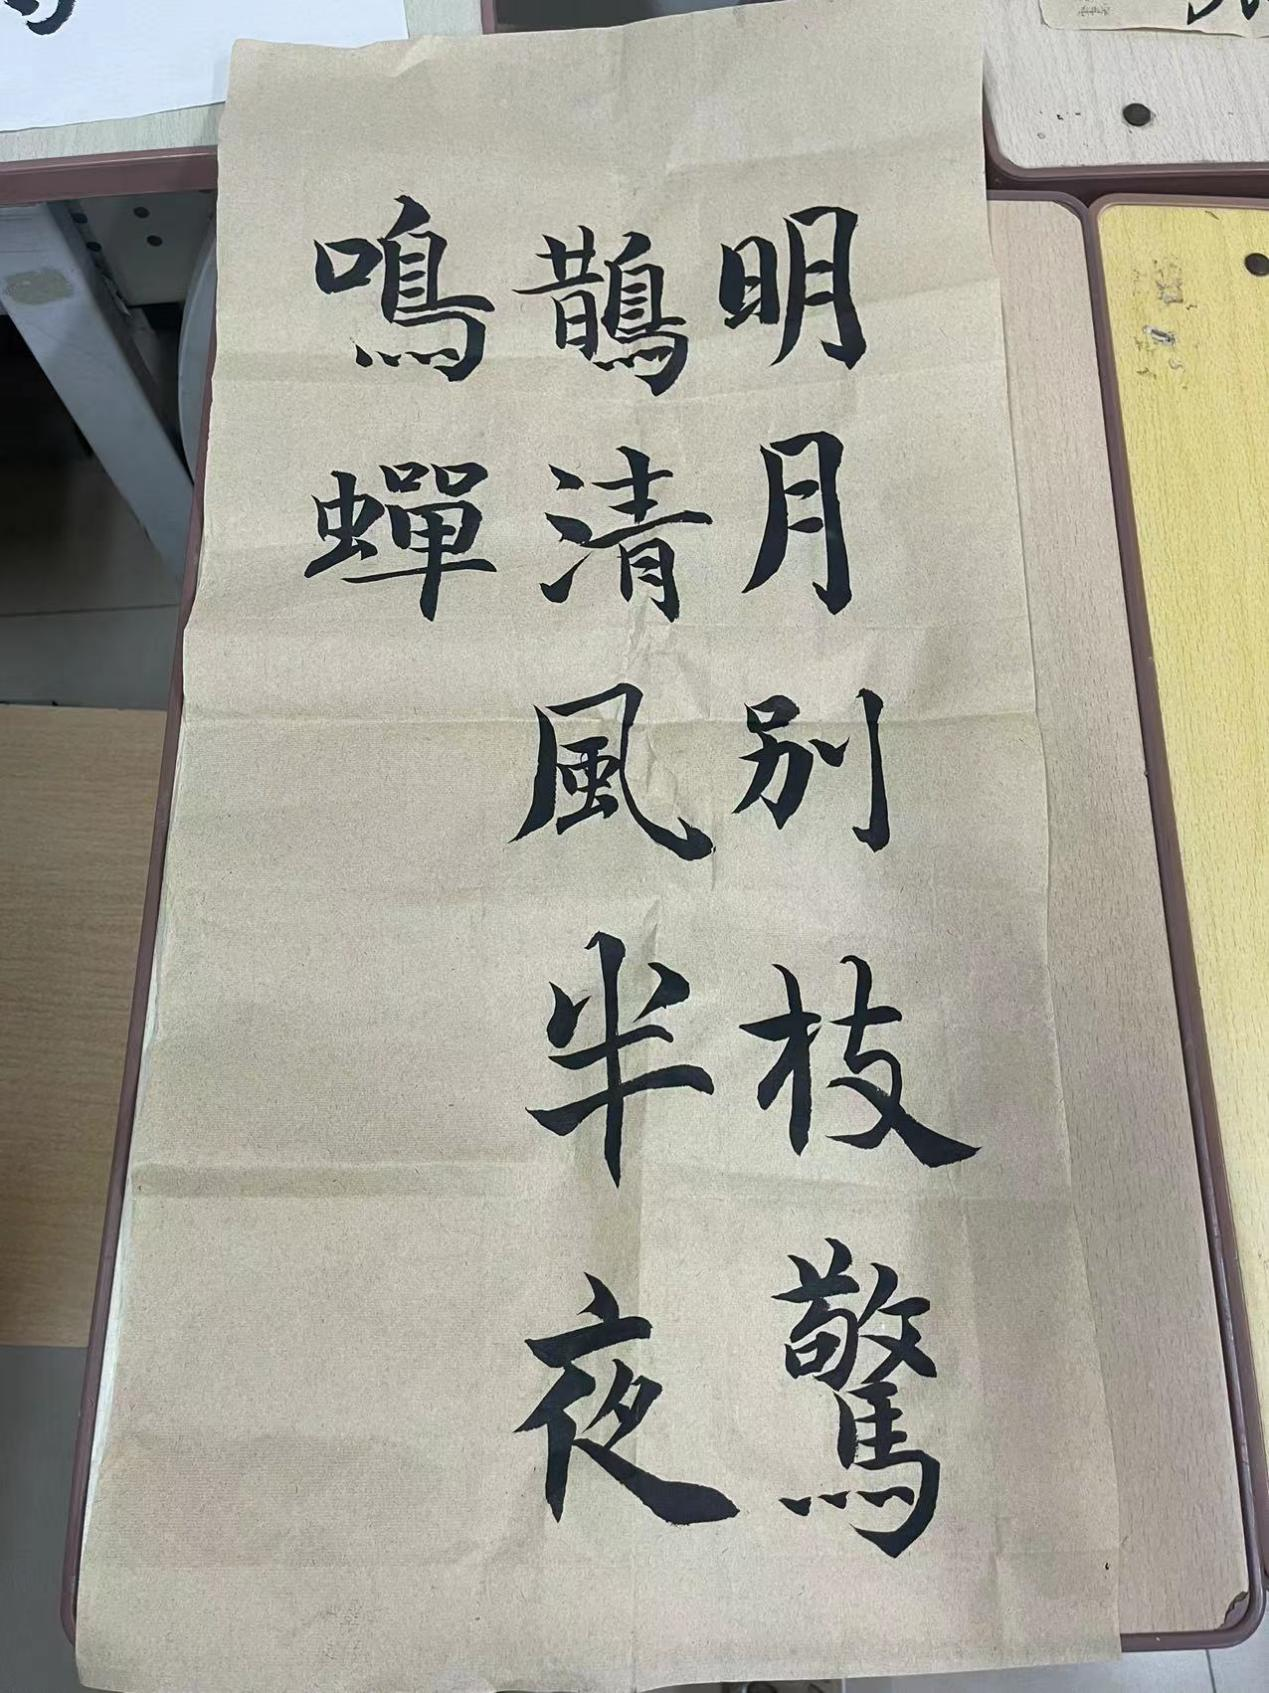 明月别枝驚
鵲清風半夜
鳴蟬